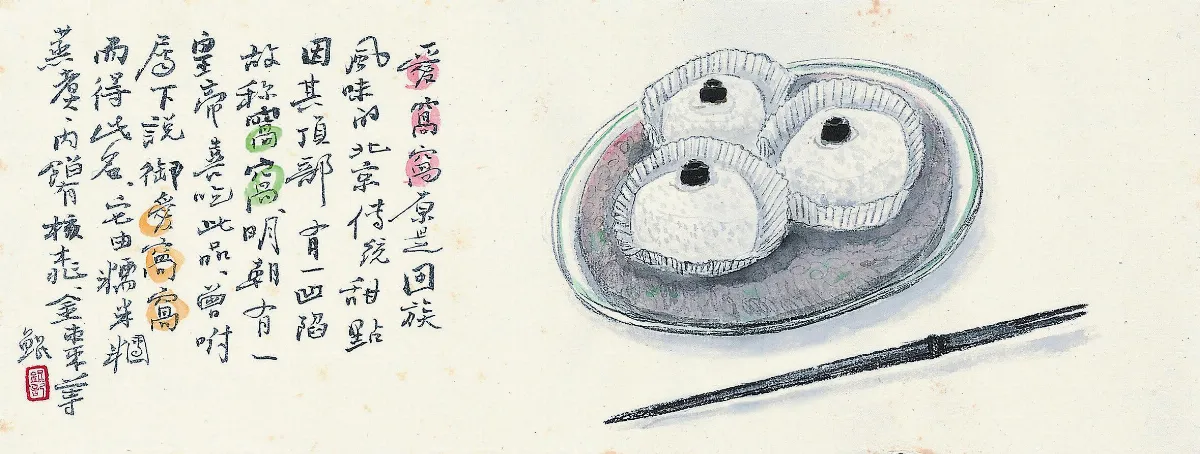 愛窩窩原是回族
風味的北京傳統甜點
因其頂部有一凹陷
故称窩窩,明朝有一
皇帝喜吃此品、曾吩
咐下説御愛窩窩
而得此名、它由糯米糰
蒸熟、内餡有核桃、金棗等
鯤